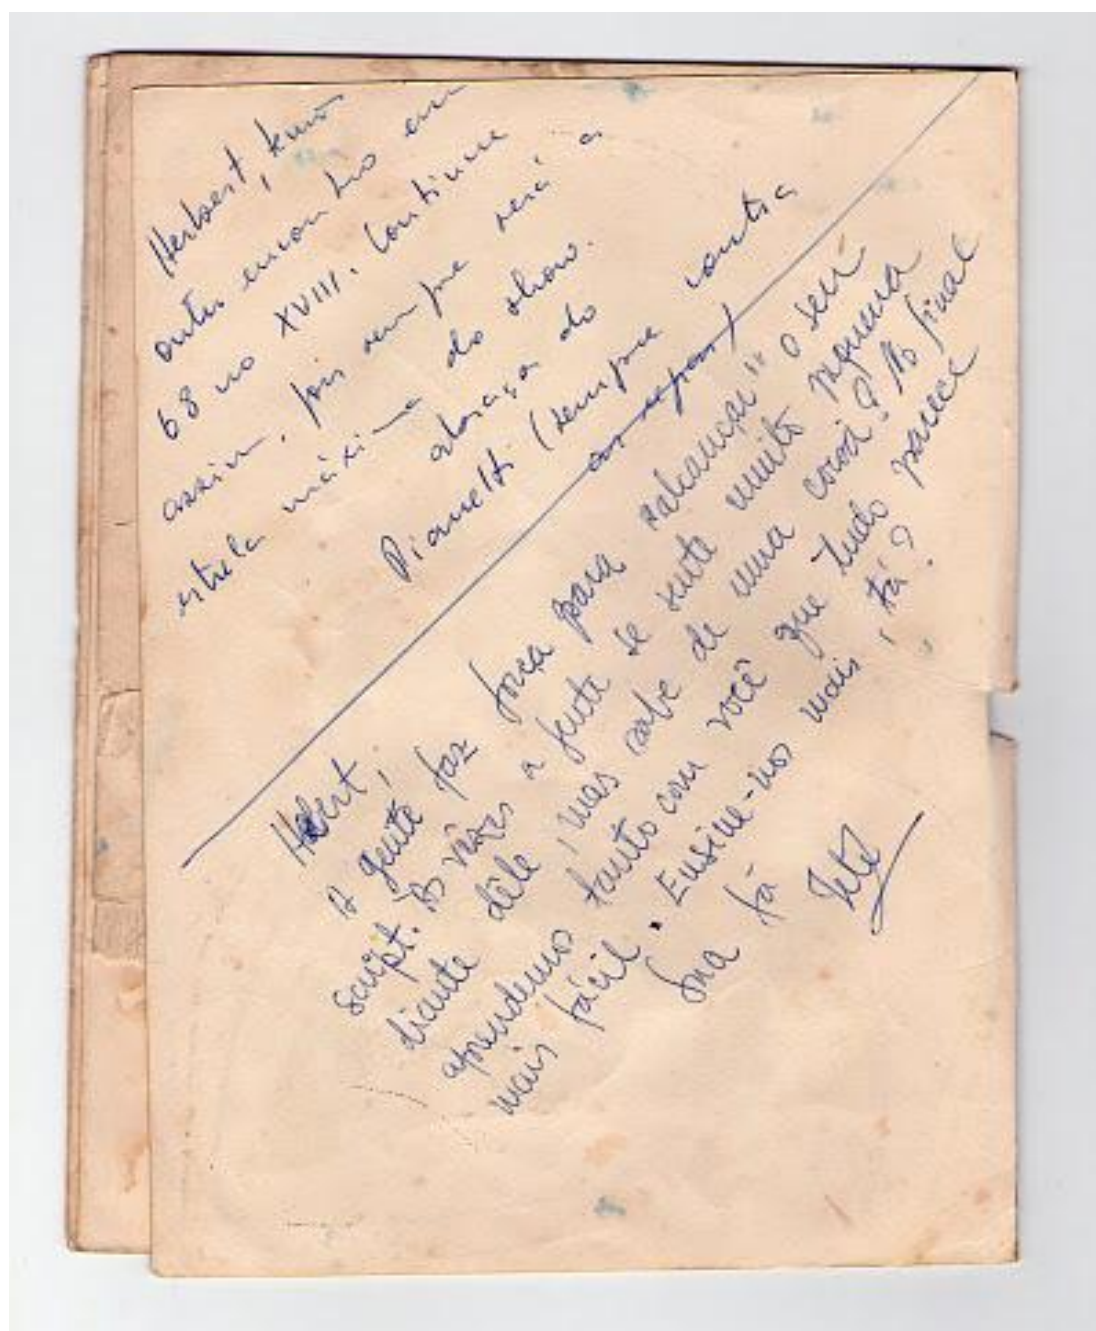 Herbert,
outro encontro em
68 no XVIII. Continue
assim, pois sempre será a
estrela máxima do show.
abraço do
(sempre contra
Hebert,
A gente faz força para "alcançar" o seu
script. Às vêzes a gente se sente muito pequena
diante dêle, mas sabe de uma coisa? No final
aprendemos tanto com você que tudo parece
mais fácil. Ensine-nos mais, tá?
Sua fã